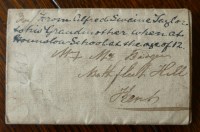 From Alfred Swaine Taylor
to his Grandmother when at
Hounslow School at the age of 12
Mrs
Hill
Kent